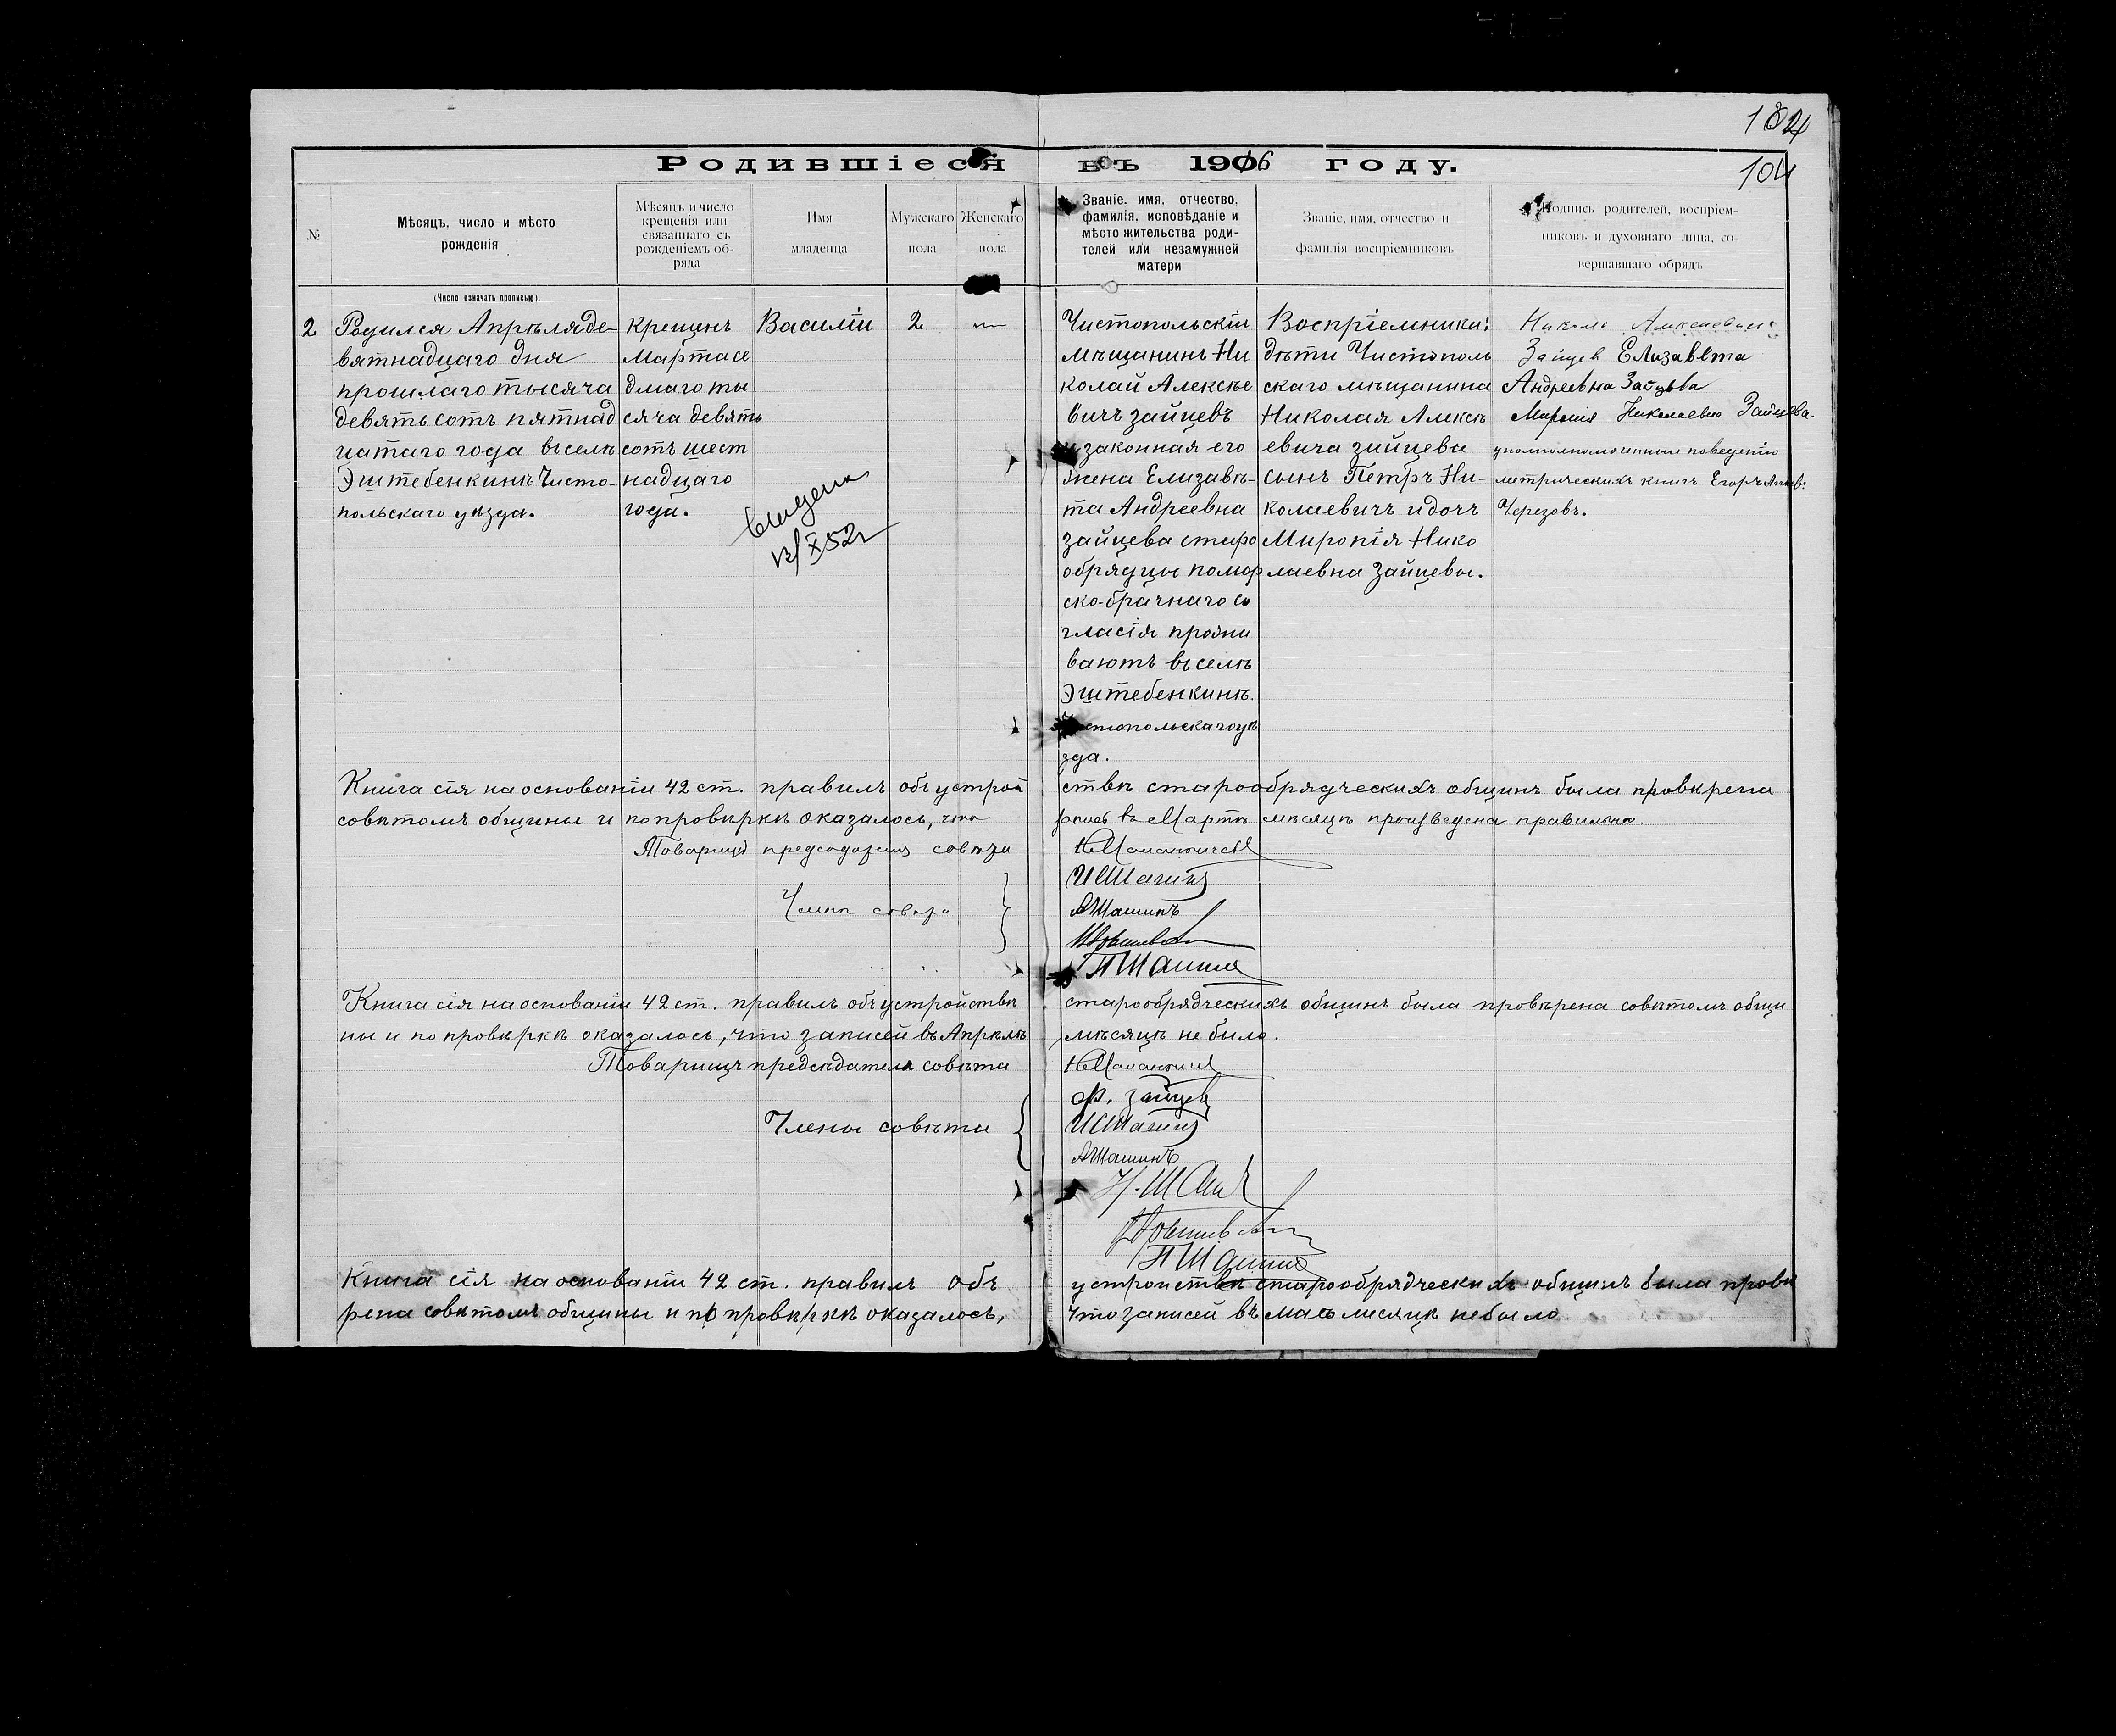 104
Родившіеся въ 1916 году.
№
Мѣсяцъ, число и мѣсто рожденія
Мѣсяцъ и число крещенія или связаннаго съ рожденіемъ обряда
Имя младенца
Мужскаго пола
Женскаго пола
Званіе, имя, отчество, фамилія, исповѣданіе и мѣсто жительства родителей или незамужней матери
Званіе, имя, отчество и фамилія воспріемниковъ
Подпись родителей, воспріемниковъ и духовнаго лица, совершавшаго обрядъ
(Число означать прописью).
2
Родился Апрѣля де-
вятнадцаго дня
прошлаго тысяча
девятьсотъ пятнад
цатаго года въ селѣ
Эштебенкинѣ Чисто-
польскаго уѣзда.
Крещенъ
Марта се
дмаго ты
сяча девять
сотъ шест
надцаго
года.
Василіи
2
—
Чистопольскіи
мѣщанинъ Ни
колай Алексѣе
вичъ Зайцевъ
и законная его
жена Елизавѣ-
та Андреевна
Зайцева старо
обрядцы помор
ско-брачнаго со
гласія прожи
ваютъ въ селѣ
Эштебенкинѣ.
Чистопольскаго уѣ
зда.
Воспріемники:
дѣти Чистополь
скаго мѣщанина
Николая Алексѣ
евича Зайцева
сынъ Петръ Ни-
колаевичъ и дочь
Миропія Нико
лаевна Зайцевы.
Зайцев Елизавѣта
Андреевна Зайцѣва
Николаевна Зайцева.
метрическихъ книгъ Егоръ
Черезовъ.
Книга сія на основаніи 42 ст. правилъ объ устрой
ствѣ старообрядческихъ общинъ была провѣрена
совѣтомъ общины и по провѣркѣ оказалось, что
запись въ Мартѣ мѣсяцѣ произведена правильно.
Товарищъ председателя совѣта
Члены совѣта
И Шашинъ
А Шашинъ
П Шашинъ
Книга сія на основаніи 42 ст. правилъ объ устройствѣ
старообрядческихъ общинъ была провѣрена совѣтомъ общи
ны и по провѣркѣ оказалось, что записей въ Апрѣлѣ
мѣсяцѣ не было.
Товарищъ предсѣдателя совѣта
Ф. Зайцев
Члены совѣта
И Шашинъ
А Шашинъ
П Шашинъ
Книга сія на основаніи 42 ст. правилъ объ
устройствѣ старообрядческихъ общинъ была провѣ
рена совѣтомъ общины и по провѣркѣ оказалось,
что записей въ мае месяцѣ не было